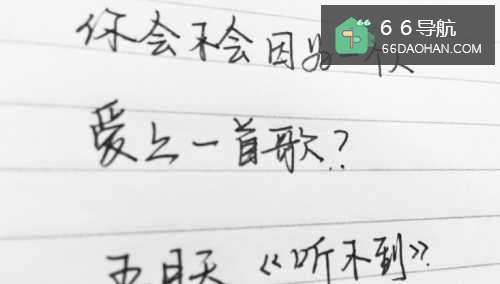 66导航
66DAOHAN.COM
你会不会因为一
爱上一首歌?
五月天《听不到》